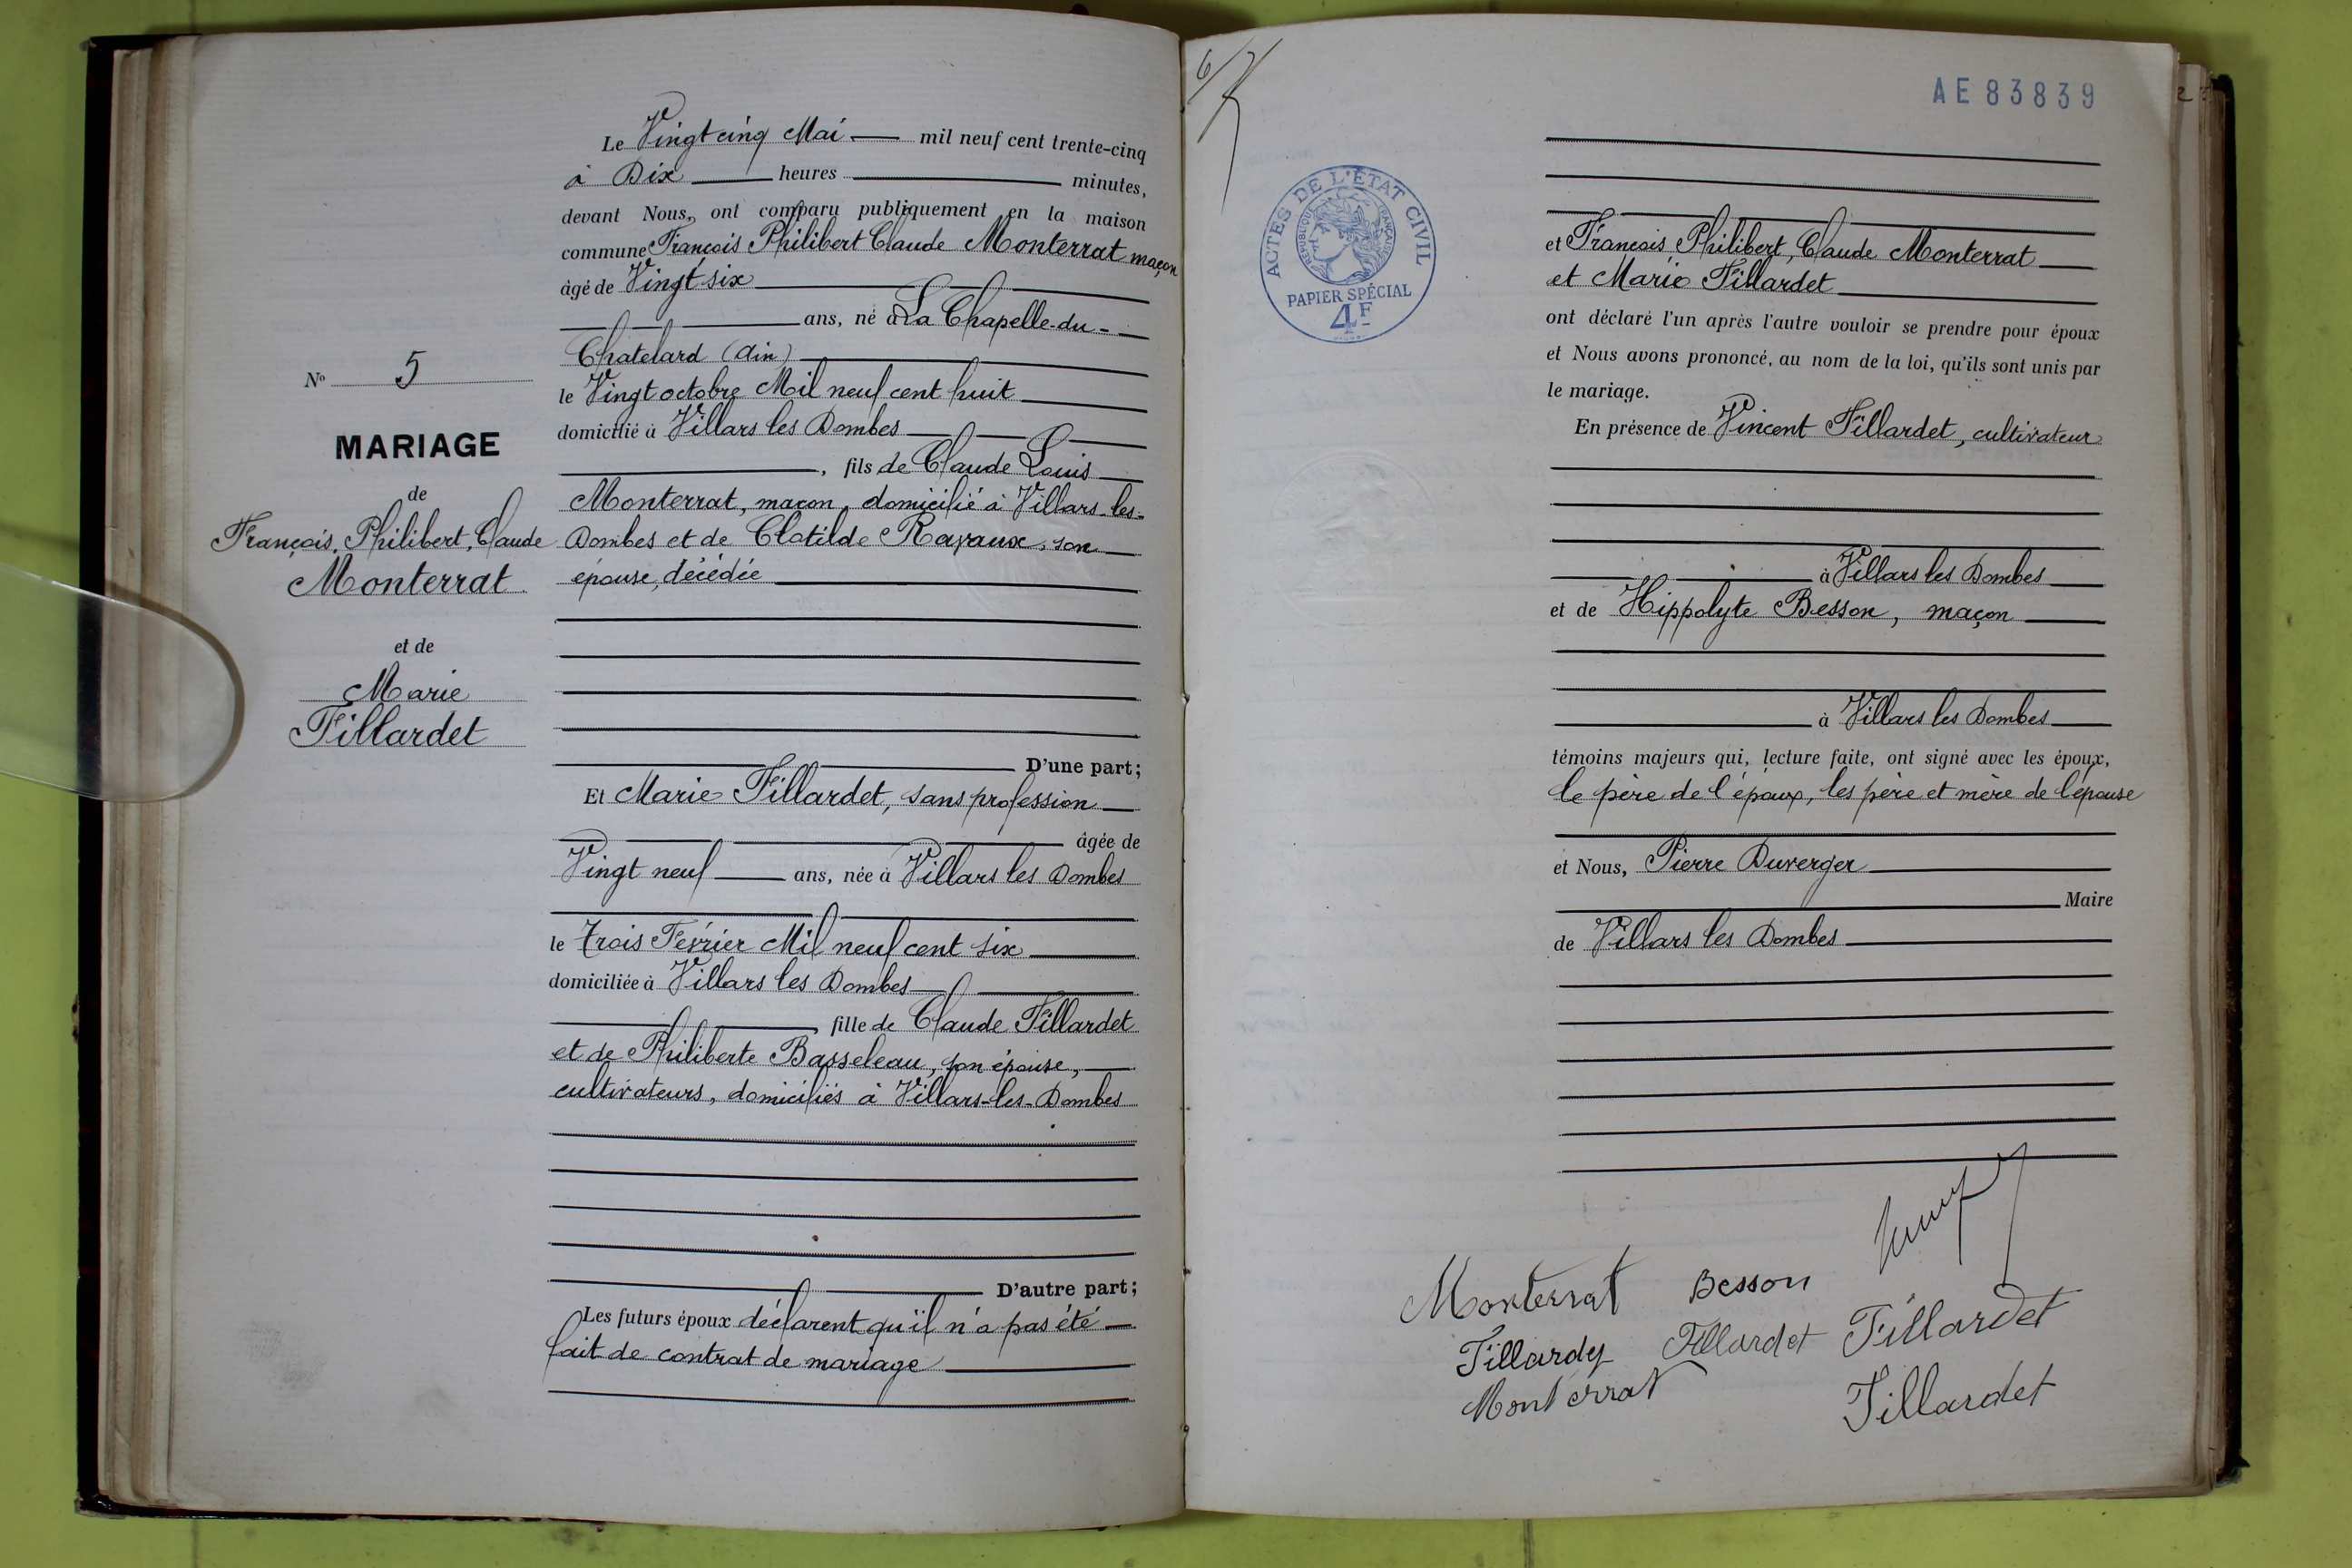 Le Vingt cinq Mai mil neuf cent trente-cinq
à Dix heures minutes,
devant Nous, ont comparu publiquement en la maison
commune François Philibert Claude Monterrat maçon
âgé de Vingt-six
ans, né à La Chapelle-du-
Châtelard (Ain)
le Vingt octobre Mil neuf cent huit
domicilié à Villars les Dombes
, fils de Claude Louis
Monterrat, maçon, domicilié à Villars-les-
Dombes et de Clotilde Ravaux, son
épouse, décédée
D'une part;
Et Marie Fillardet, sans profession
âgée de
Vingt neuf ans, née à Villars les Dombes
le trois Février Mil neuf cent six
domiciliée à Villars les Dombes
fille de Claude Fillardet
et de Philiberte Basseleau, son épouse,
cultivateurs, domiciliés à Villars-les-Dombes
D'autre part;
Les futurs époux déclarent qu'il n'a pas été
fait de contrat de mariage
No 5
MARIAGE
de
François, Philibert, Claude
Monterrat
et de
Marie
Fillardet
AE 83839
ACTES DE L'ÉTAT CIVIL
RÉPUBLIQUE FRANÇAISE
PAPIER SPÉCIAL
4F
et François, Philibert, Claude Monterrat
et Marie Fillardet
ont déclaré l'un après l'autre vouloir se prendre pour époux
et Nous avons prononcé, au nom de la loi, qu'ils sont unis par
le mariage.
En présence de Vincent Fillardet, cultivateur
à Villars les Dombes
et de Hippolyte Besson, maçon
à Villars les Dombes
témoins majeurs qui, lecture faite, ont signé avec les époux,
le père de l'époux, les père et mère de l'épouse
et Nous, Pierre Duverger
Maire
de Villars les Dombes
Monterrat Besson
Fillardet Fillardet
Monterrat Fillardet